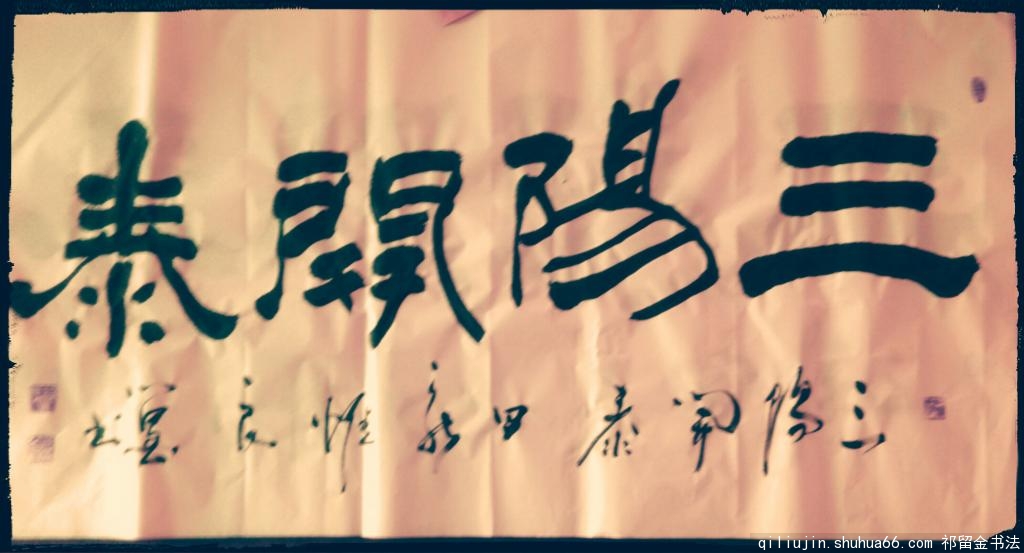 三陽開泰
三陽開泰 惟良
qiliujin.shuhua66.com 祁留金书法